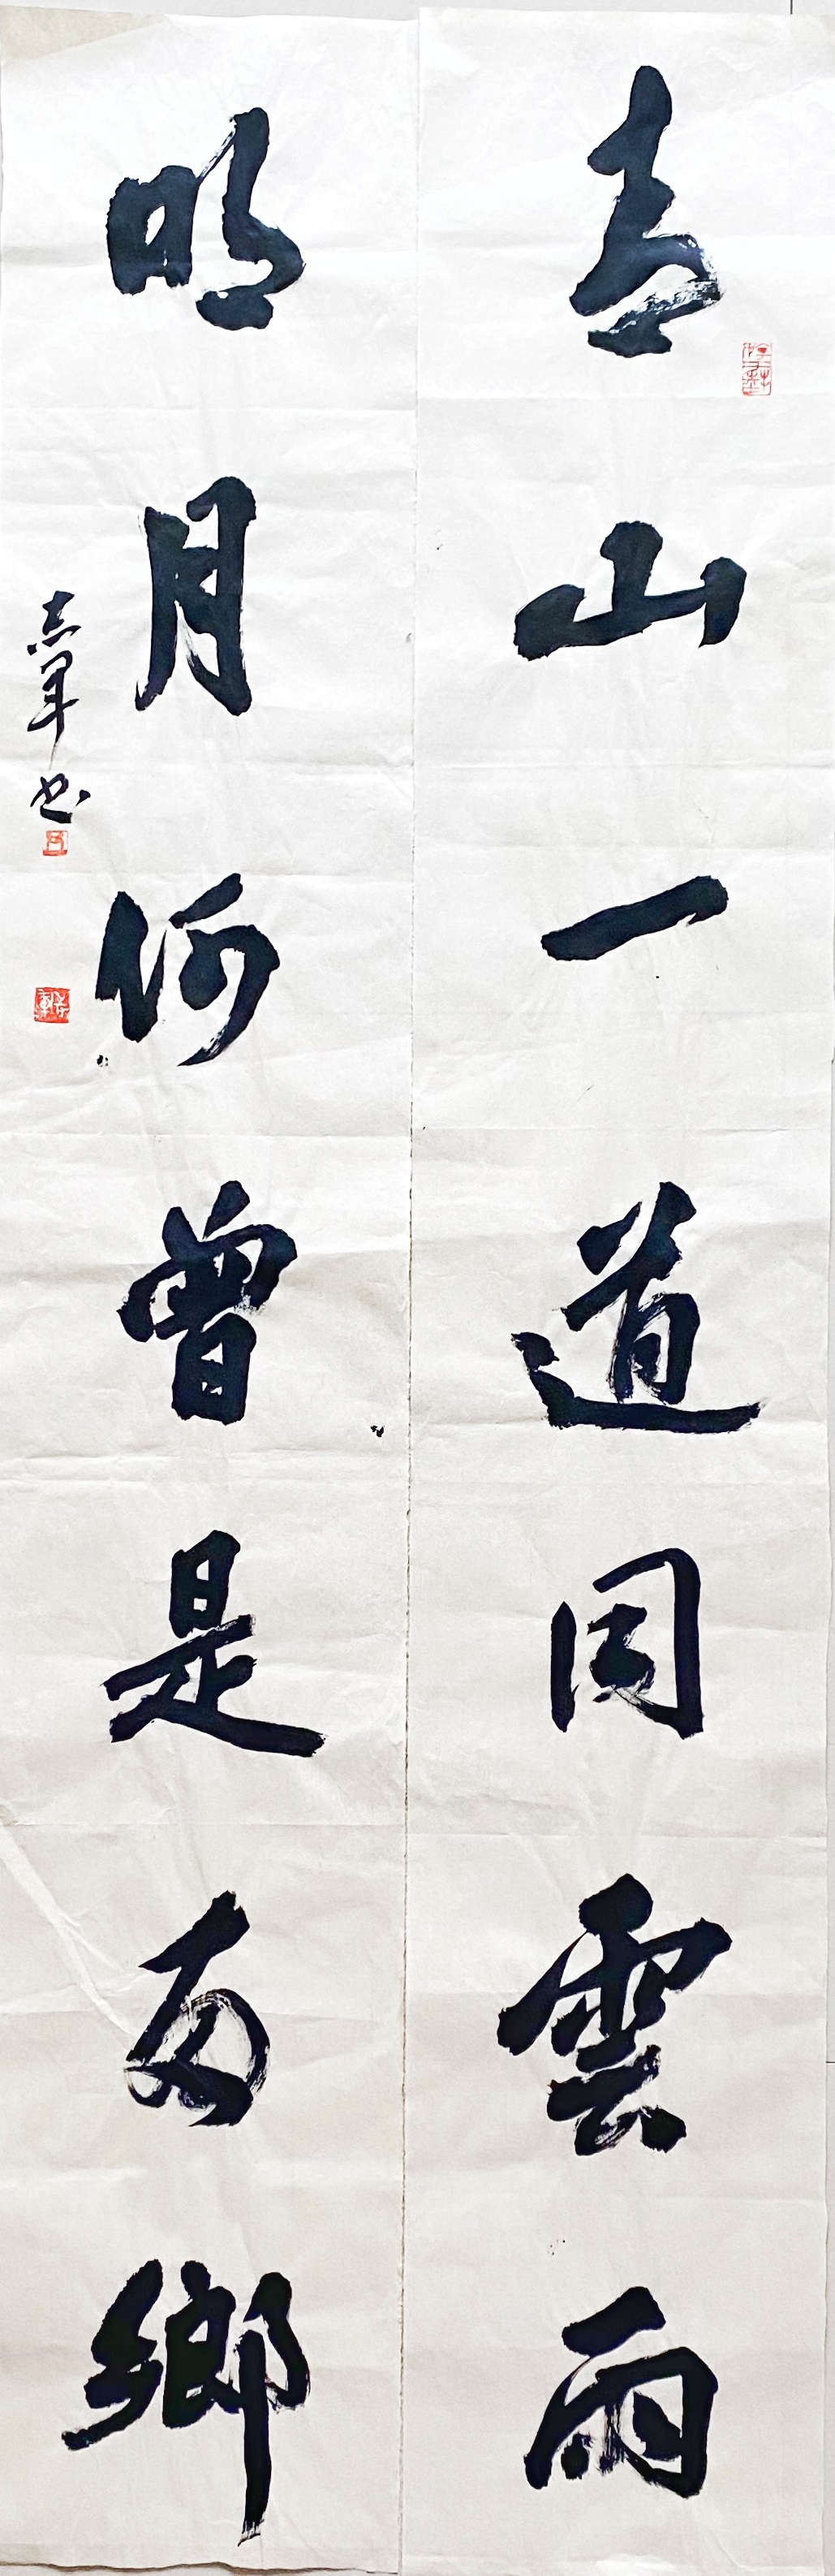 青山一道同雲雨
明月何曾是兩鄉
志軍书